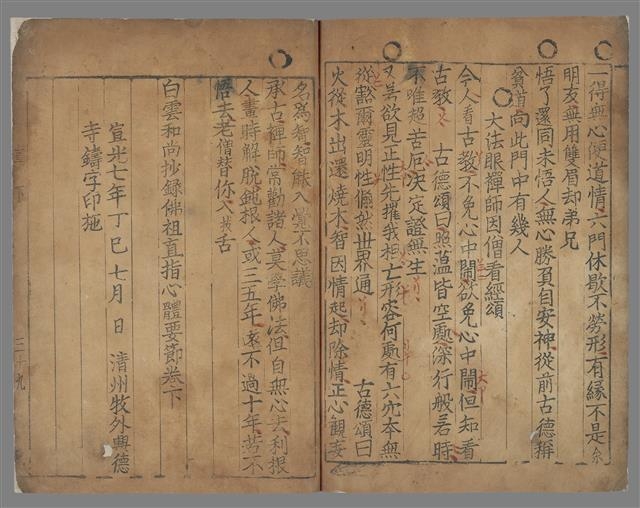 一得無心便道情六門休歇不勞形有緣不是余
朋友無用雙眉却弟兄
悟了還同未悟人無心勝負自安神從前古德稱
貧道向此門中有幾人
大法眼禪師因僧看經頌
今人看古教不免心中鬧欲免心中鬧但知看
古教 古德頌曰照蘊皆空處深行般若時
不唯超苦厄決定證無生
又若欲見正性先摧我相亡形容何處有六穴本無
從豁爾靈明性翛然世界通 古德頌曰
火從木出還燒木智因情起却除情正心觀妄
名爲智智能入覺不思議
承古禪師常勸諸人莫學佛法但自無心去利根
人晝時解脫鈍根人或三五年遠不過十年若不
悟去老僧替你入拔舌
白雲和尚抄錄佛祖直指心體要節卷下
宣光七年丁巳七月 日 清州牧外興德
寺鑄字印施
下
三十九